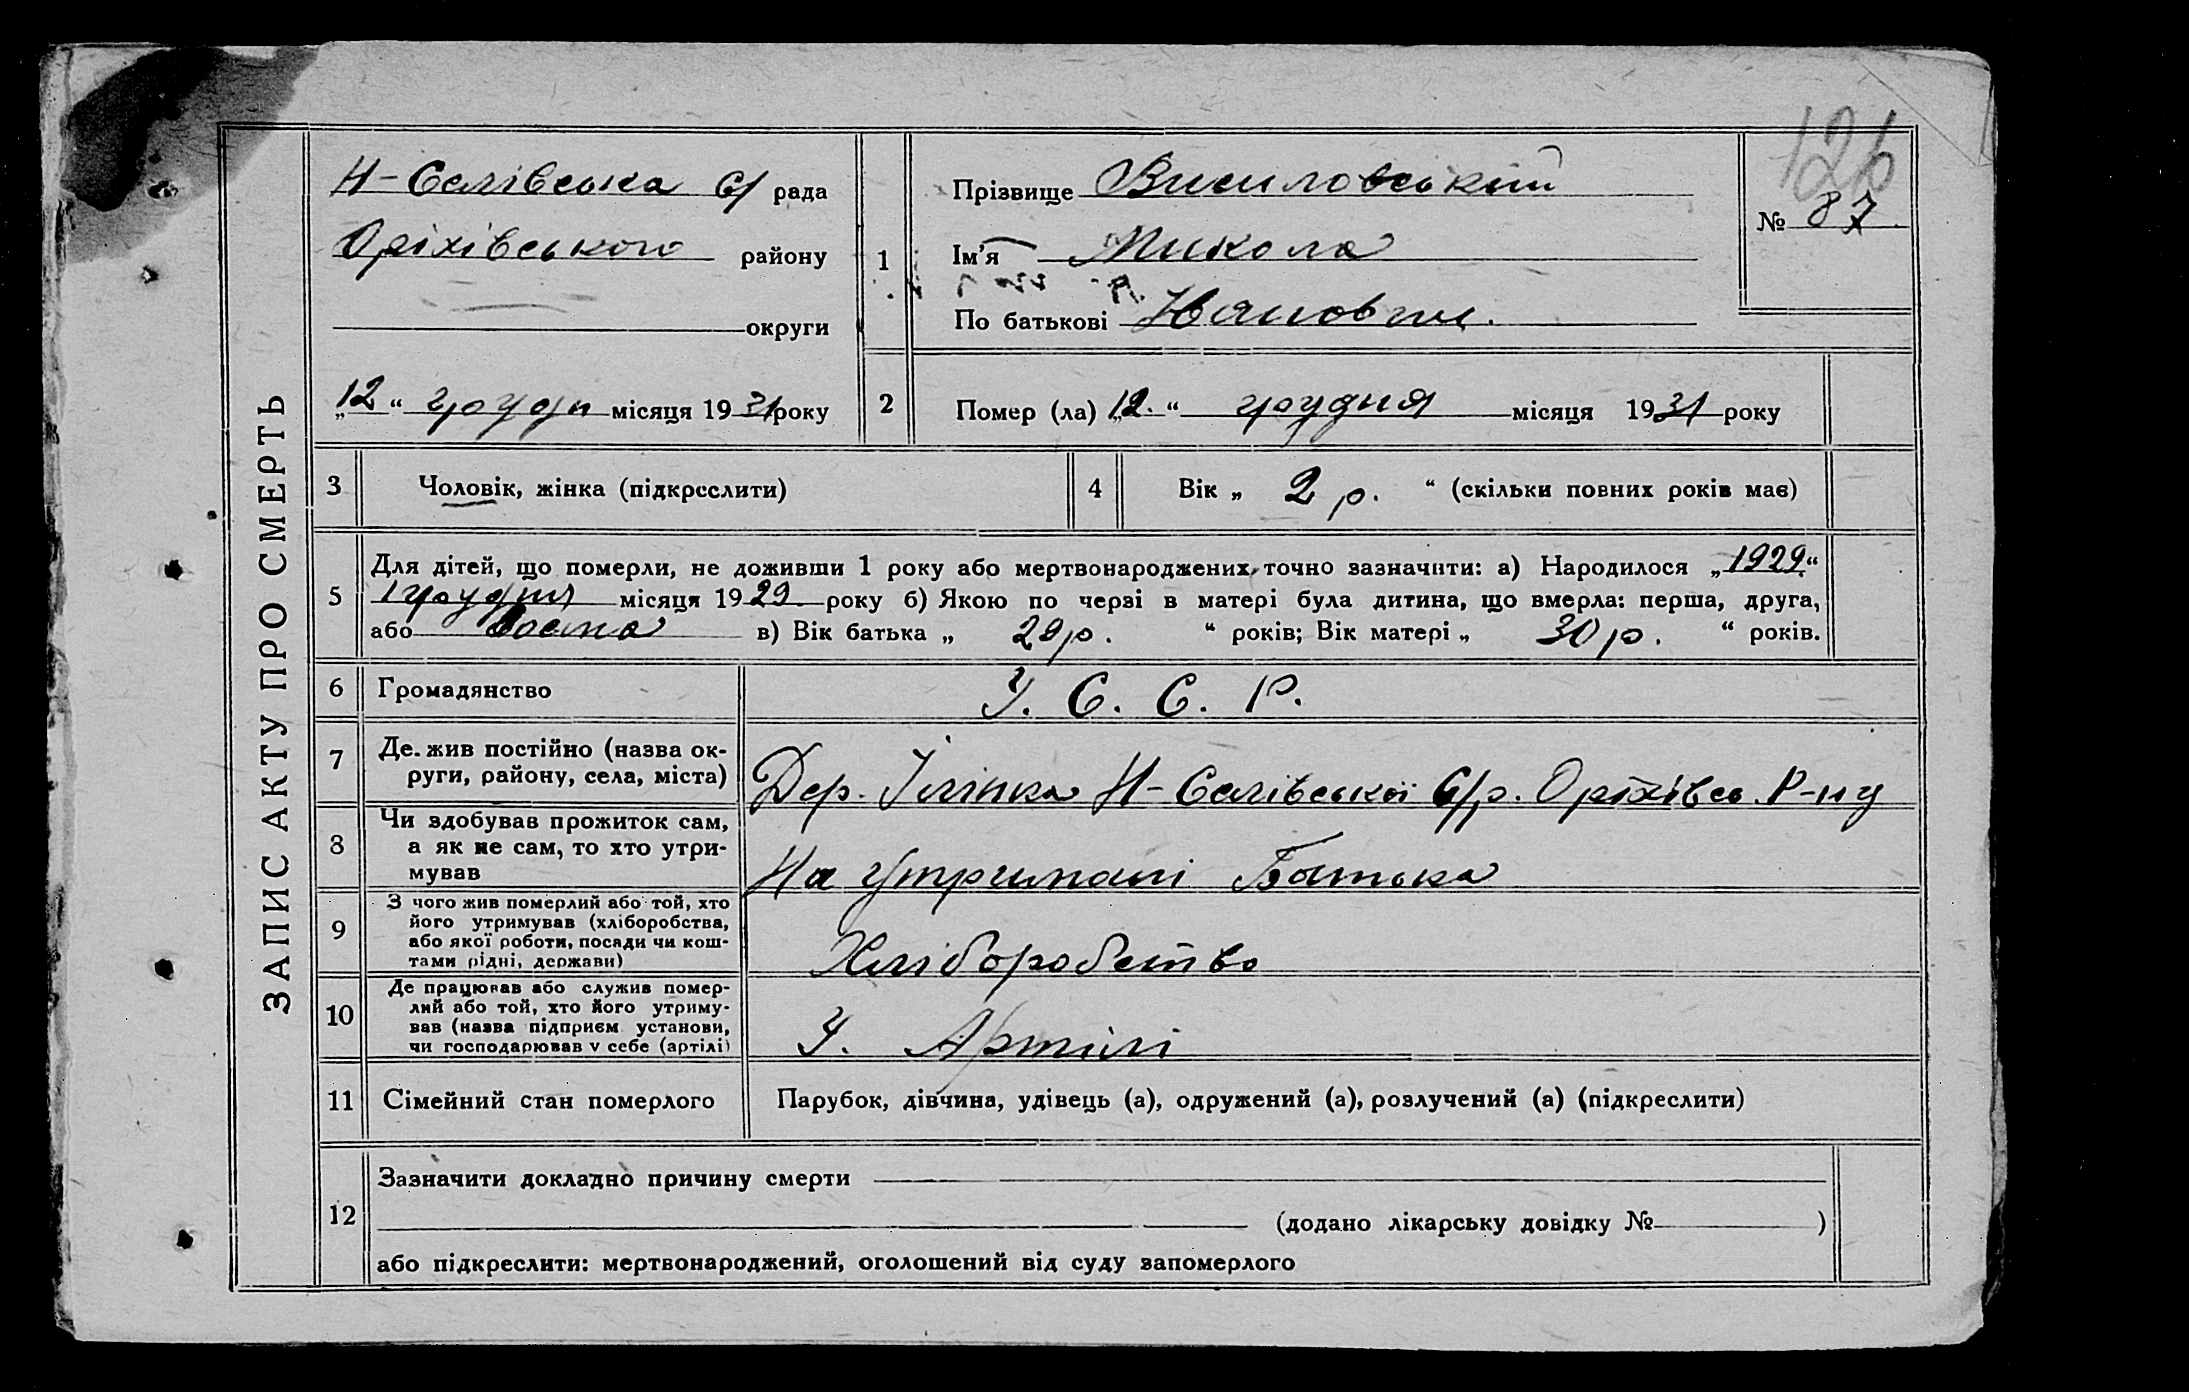 ЗАПИС АКТУ ПРО СМЕРТЬ
126
Н-Єлівська С/ рада
Оріхівського району
округи
„12“ грудн місяця 1931 року
1 Прізвище
Ім'я Микола
По батькові Іванович.
№ 87
2 Помер (ла) „12.“ грудня місяця 1931 року
3 Чоловік, жінка (підкреслити)
4 Вік „ 2 р. “ (скільки повних років має)
5 Для дітей, що померли, не доживши 1 року або мертвонароджених, точно зазначити: а) Народилося „1929“
1 грудня місяця 1929. року б) Якою по черзі в матері була дитина, що вмерла: перша, друга,
або в) Вік батька „ 29 р. “ років; Вік матері „ 30 р. “ років.
6 Громадянство У. С. С. Р.
7 Де жив постійно (назва ок-
руги, району, села, міста) Дер. Н-Єлівської С/р. Оріхівсь. Р-ну
8 Чи здобував прожиток сам,
а як не сам, то хто утри-
мував На утримані Батька
9 З чого жив померлий або той, хто
його утримував (хліборобства,
або якої роботи, посади чи кош-
тами рідні, держави) Хліборобство
10 Де працював або служив помер-
лий або той, хто його утриму-
вав (назва підприєм. установи,
чи господарював у себе (артілі) У. Артілі
11 Сімейний стан померлого Парубок, дівчина, удівець (а), одружений (а), розлучений (а) (підкреслити)
12 Зазначити докладно причину смерти
(додано лікарську довідку № )
або підкреслити: мертвонароджений, оголошений від суду запомерлого